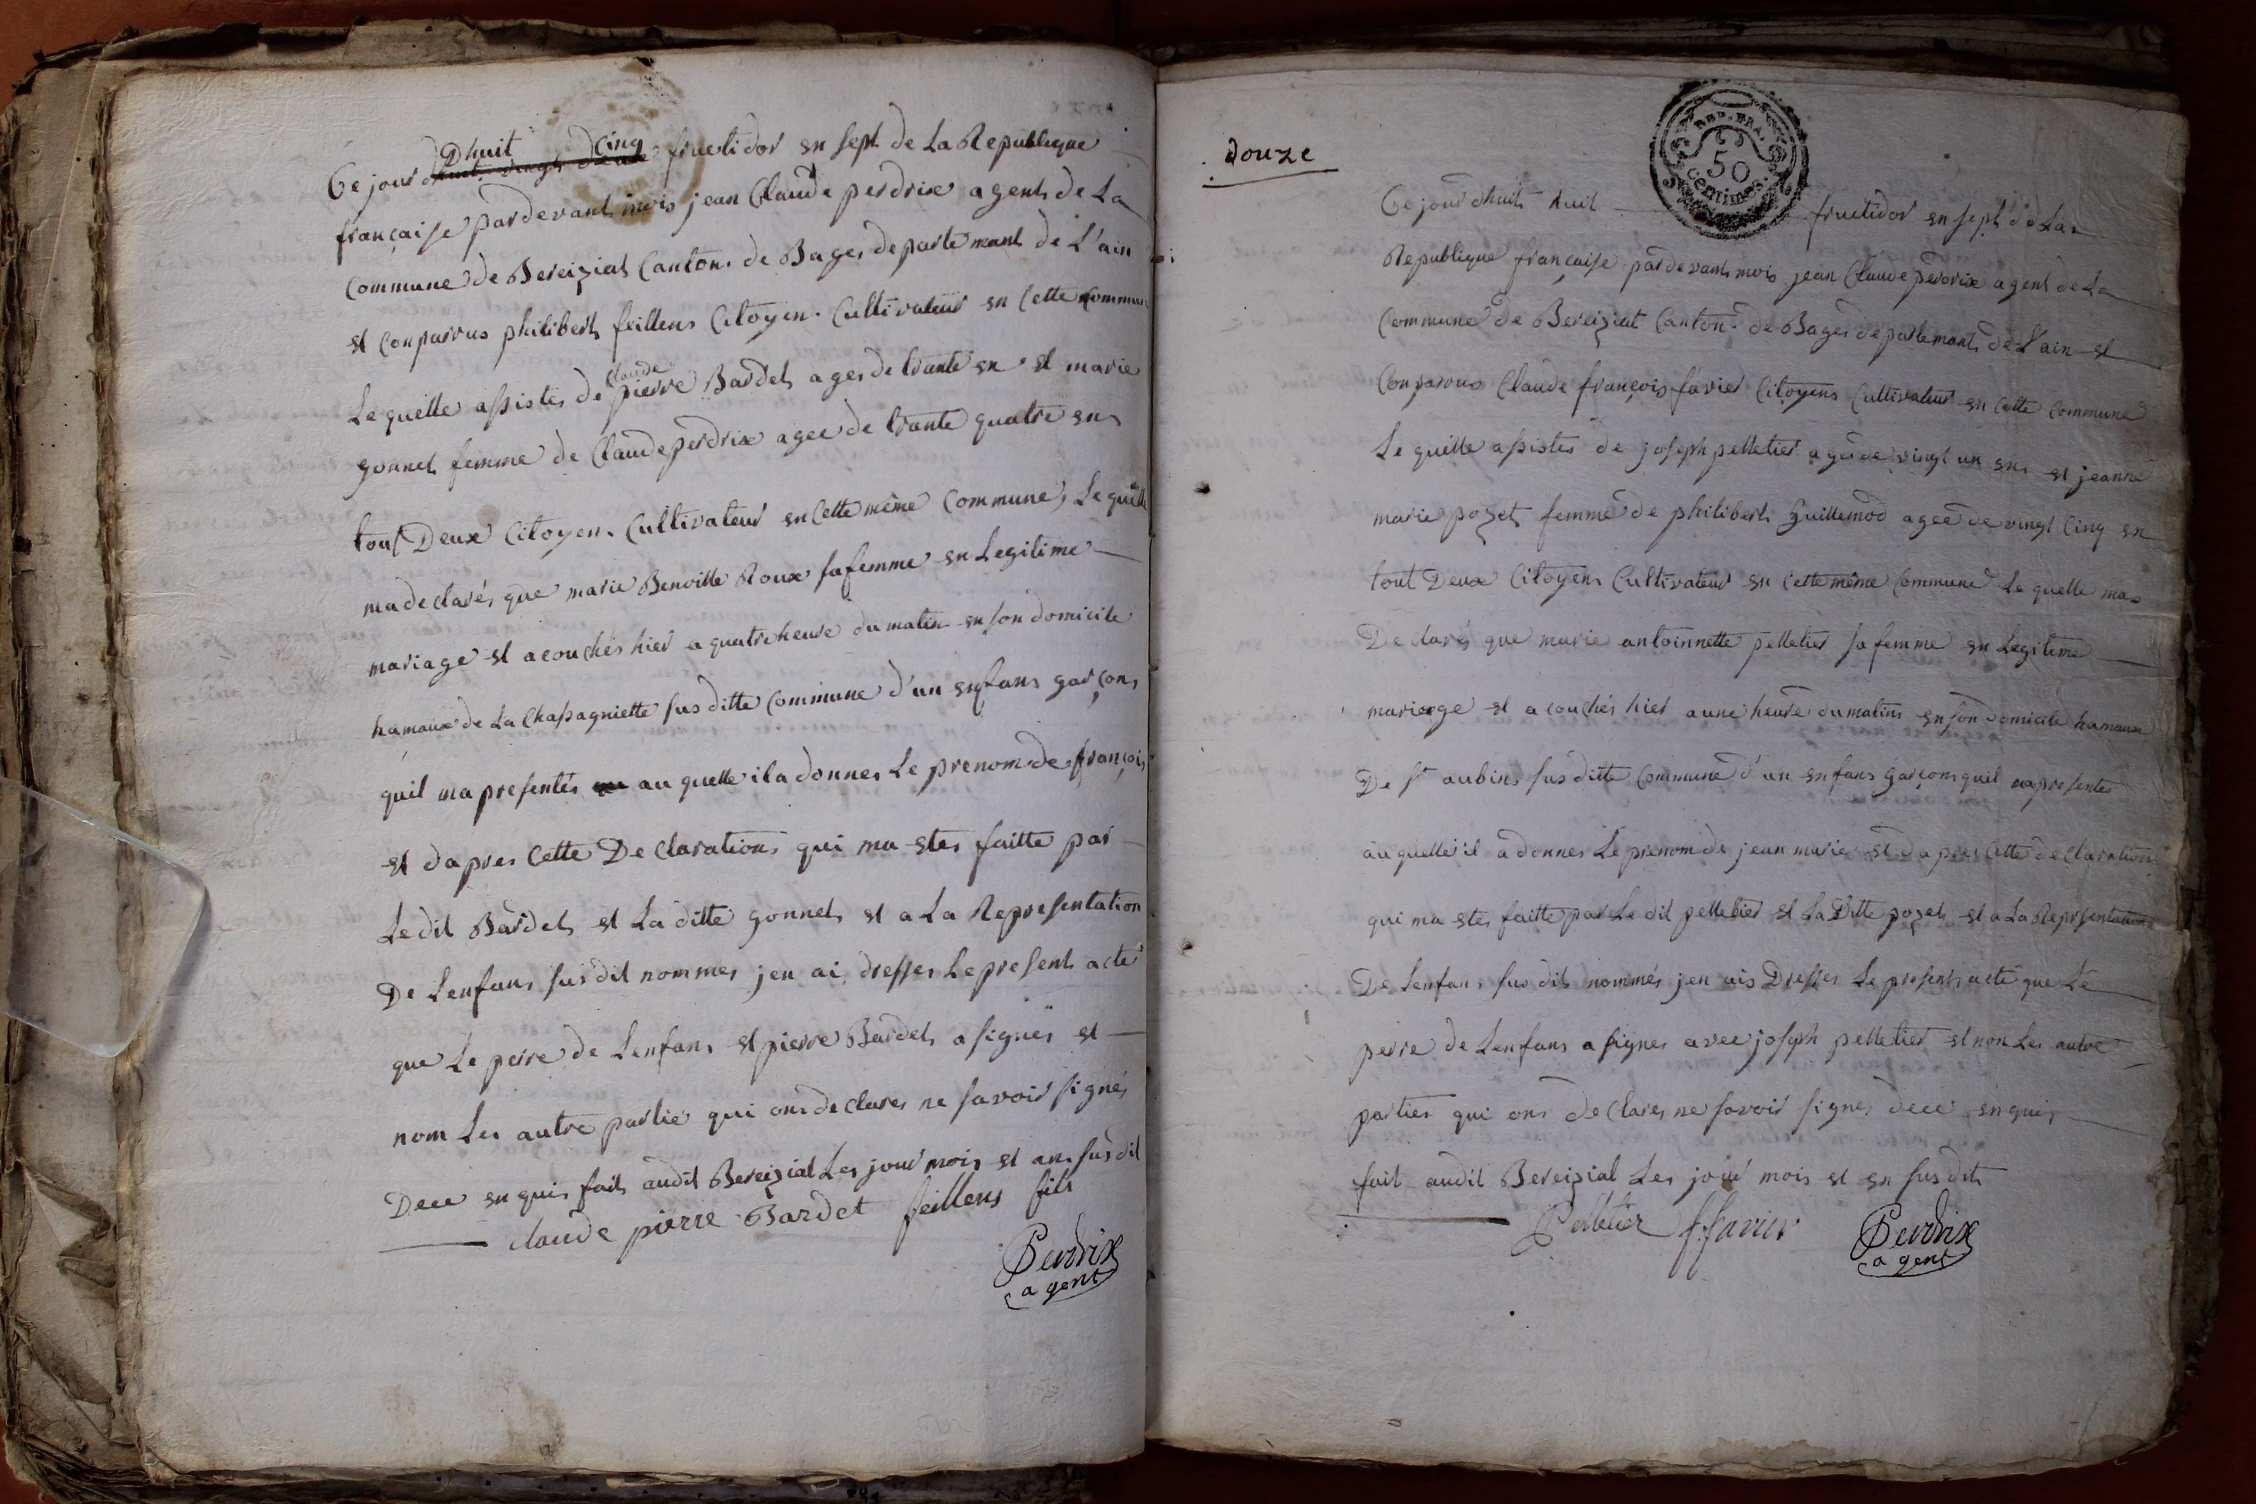 Ce jour dhuit vingt deux Dhuit cinq fructidor en sept de La Republique
française pardevant mois jean Claude perdrix agents de La
commune de Bereiziat Canton de Bages departemant de L'ain
et conparvus philibert feillens Citoyen Cultivateur en Cette commune
Le quelle assistés de Claude pierre Bardet ages de trante en et marie
gonnet femme de Claude perdrix agee de trante quatre en
tout Deux Citoyen Cultivateur en Cette même commune, Le quelle
ma declarés que marie Benoitte Roux sa femme en Legitime
mariage et acouchés hier a quatre heure du matin en son domicile
hamaux de La Chassagniette sus ditte commune d'un enfans garçons
quil ma presentés au quelle il a donnes Le prenom de françois
et dapres Cette Declarations qui ma etes faitte par
Le dit Bardet et La ditte gonnet et a La Representation
De Lenfans sus dit nommes jen ai dresses Le present acte
que Le perre de Lenfans et pierre Bardet a signés et
nom Les autre partie qui ons declares ne savoir signés
Dece enquis fait audit Bereizial Les jour mois et an sus dit
claude pierre Bardet feillens fils
Perdrix
agent
douze
REP. FRA.
50
centimes
Ce jour dhuit huit fructidor en sept de La
Republique française pardevant mois jean Claude perdrix agent de La
Commune de Bereiziat Canton de Bages departemant de L'ain et
Conparvus Claude françois favier Citoyens Cultivateur en Cette commune
Le quelle assistés de joseph pelletier ages de vingt un en et jeanne
marie pozet femme de philibert guillemod agee de vingt Cinq en
tout Deux Citoyens Cultivateur en Cette même Commune Le quelle ma
Declarés que marie antoinnette pelletier sa femme en Legitime
mariage et acouchés hier a une heure du matins en son domicile hamaux
De St aubins sus ditte Commune d'un enfans garçons quil ma presentes
au quelle il a donnes Le prenom de jean marie et dapres Cette declaration
qui ma etes faitte par Le dit pelletier et La Ditte pozet et a La Representation
De Lenfans sus dit nommés jen ais Dresses Le present acte que Le
perre de Lenfans a signes avec joseph pelletier et non Les autre
parties qui ons declares ne savoir signes dece enquis
fait audit Bereizial Les jour mois et en sus dit
Pelletier f favier
Perdrix
agent